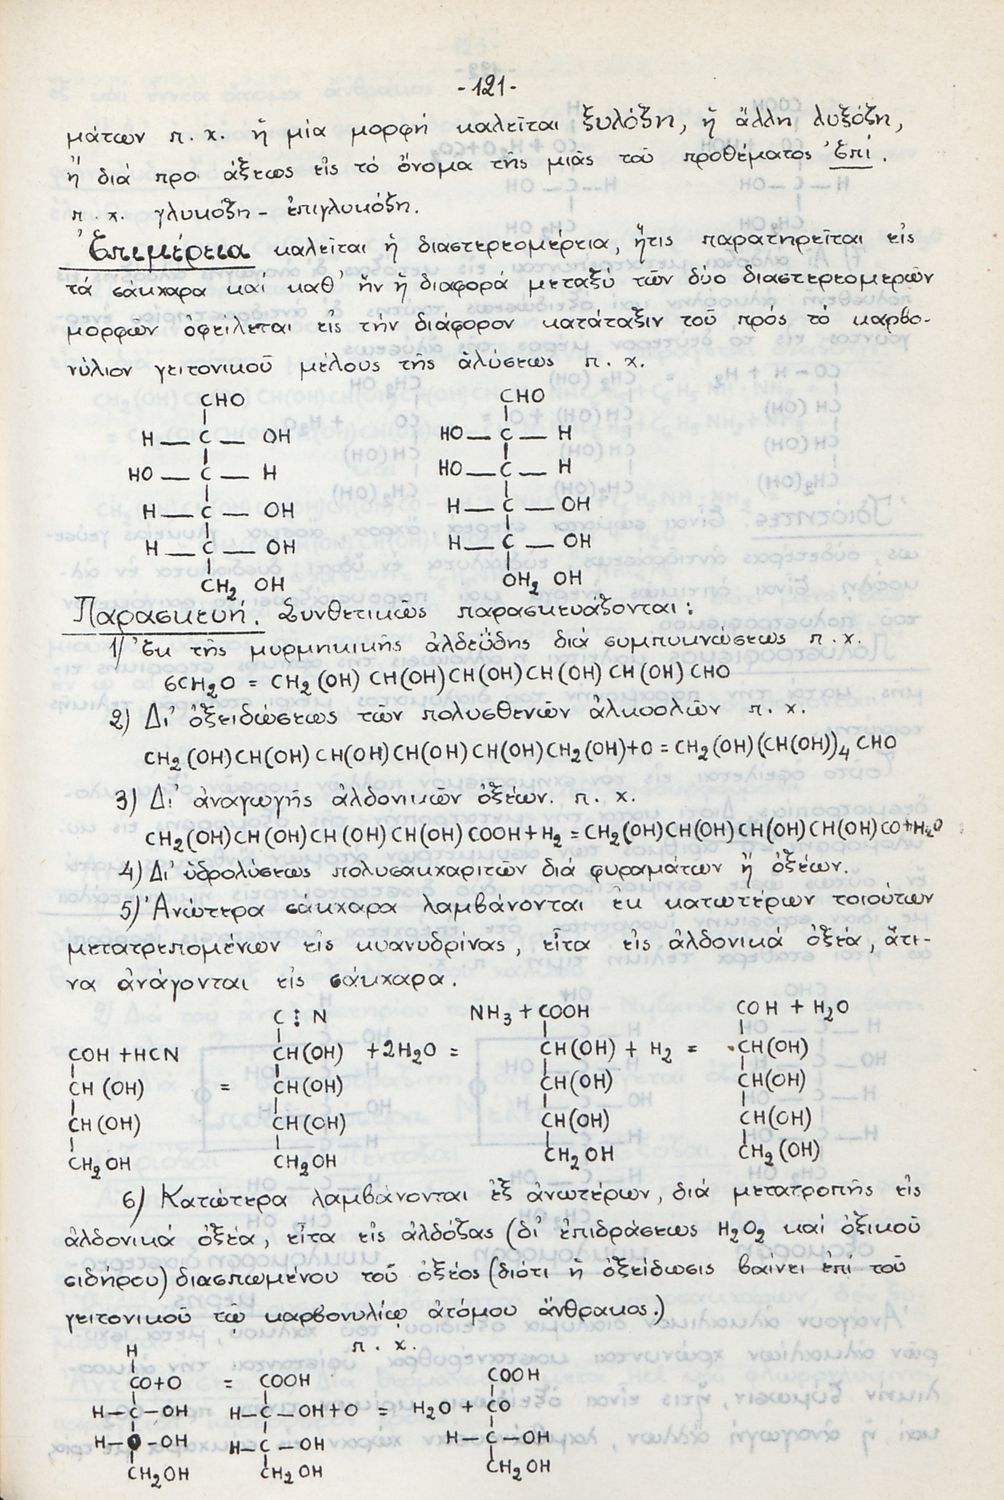 -121-
μάτων π.χ. ἤ μία μορφή καλεῖται ξυλόζη, ἡ ἄλλη λυξόζη,
ἤ διά προ άξεως εἰς τό ὄνομα τῆς μιᾶς τοῦ προθέματος Ἐπί.
π.χ. γλυκόζη - ἐπιγλυκόζη.
Ἐπιμέρεια καλεῖται ἡ διαστερεομέρεια, ἥτις παρατηρεῖται εἰς
τά σάκχαρα καί καθ' ἥν ἡ διαφορά μεταξύ τῶν δύο διαστερεομερῶν
μορφῶν ὀφείλεται εἰς τήν διάφορον κατάταξιν τοῦ πρός τό καρβο-
νύλιον γειτονικοῦ μέλους τῆς ἁλύσεως π.χ.
CHO CHO
H — C — OH HO — C — H
HO — C — H HO — C — H
H — C — OH H — C — OH
H — C — OH H — C — OH
CH2 OH OH2 OH
Παρασκευή. Συνθετικῶς παρασκευάζονται:
1) Ἐκ τῆς μυρμηκικῆς ἀλδεΰδης διά συμπυκνώσεως π.χ.
6CH2O = CH2(OH) CH(OH) CH(OH) CH(OH) CH(OH) CHO
2) Δι' ὀξειδώσεως τῶν πολυσθενῶν ἀλκοολῶν π.χ.
CH2(OH)CH(OH) CH(OH) CH(OH) CH(OH) CH2(OH)+O = CH2(OH)(CH(OH))4 CHO
3) Δι' ἀναγωγῆς ἀλδονικῶν ὀξέων. π.χ.
CH2(OH)CH(OH)CH(OH)CH(OH) COOH+H2 = CH2(OH)CH(OH)CH(OH)CH(OH)CO+H2O
4) Δι' ὑδρολύσεως πολυσακχαριτῶν διά φυραμάτων ἤ ὀξέων.
5) Ἀνώτερα σάκχαρα λαμβάνονται ἐκ κατωτέρων τοιούτων
μετατρεπομένων εἰς κυανυδρίνας, εἶτα εἰς ἀλδονικά ὀξέα, ἄτι-
να ἀνάγονται εἰς σάκχαρα.
C ⋮ N NH3 + COOH COH + H2O
COH + HCN CH(OH) +2H2O = CH(OH) + H2 = CH(OH)
CH (OH) = CH(OH) CH(OH) CH(OH)
CH(OH) CH(OH) CH(OH) CH(OH)
CH2OH CH2OH CH2OH CH2(OH)
6) Κατώτερα λαμβάνονται ἐξ ἀνωτέρων, διά μετατροπῆς εἰς
ἀλδονικά ὀξέα, εἶτα εἰς ἀλδόζας (δι' ἐπιδράσεως H2O2 καί ὀξικοῦ
σιδήρου) διασπωμένου τοῦ ὀξέος (διότι ἡ ὀξείδωσις βαίνει ἐπί τοῦ
γειτονικοῦ τῷ καρβονυλίῳ ἀτόμου ἄνθρακος.)
π.χ.
H
CO+O = COOH COOH
H–C–OH H–C–OH+O = H2O + CO
H– –OH H–C–OH H–C–OH
CH2OH CH2OH CH2OH